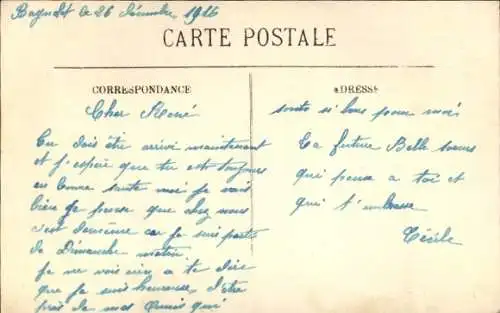 Bagnolet le 26 décembre 1916
CARTE POSTALE
CORRESPONDANCE
Cher René
Tu dois être arrivé maintenant
et j'espère que tu est toujours
en bonne santé moi je vais
bien je pense que chez vous
c'est de même car je suis parti
de Dimanche matin
je ne vois rien a te dire
que je suis heureuse d'être
près de mes amis qui
ADRESSE
sont si bons pour moi
Ta future Belle soeur
qui pense a toi et
qui t'embrasse
Cécile